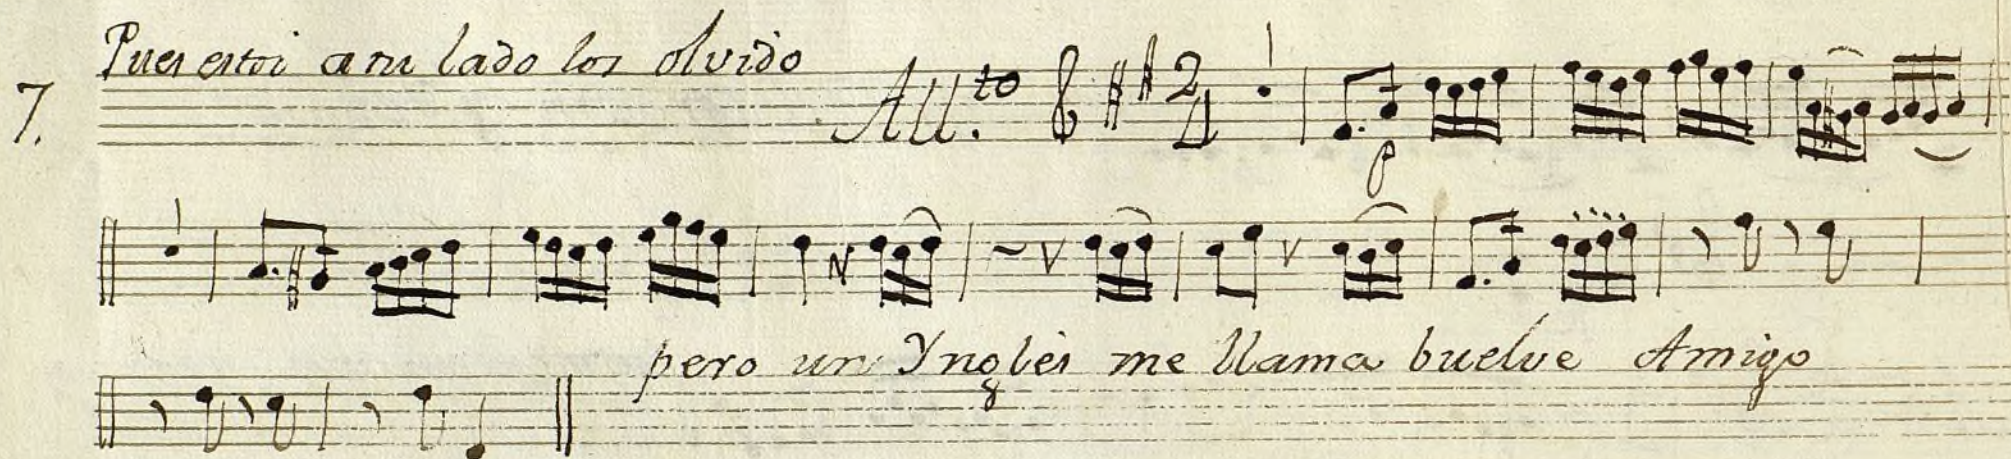 Pues estoi a su lado los olvido
7. All.to 2/4
p
pero un Ynglès me llama buelve Amigo